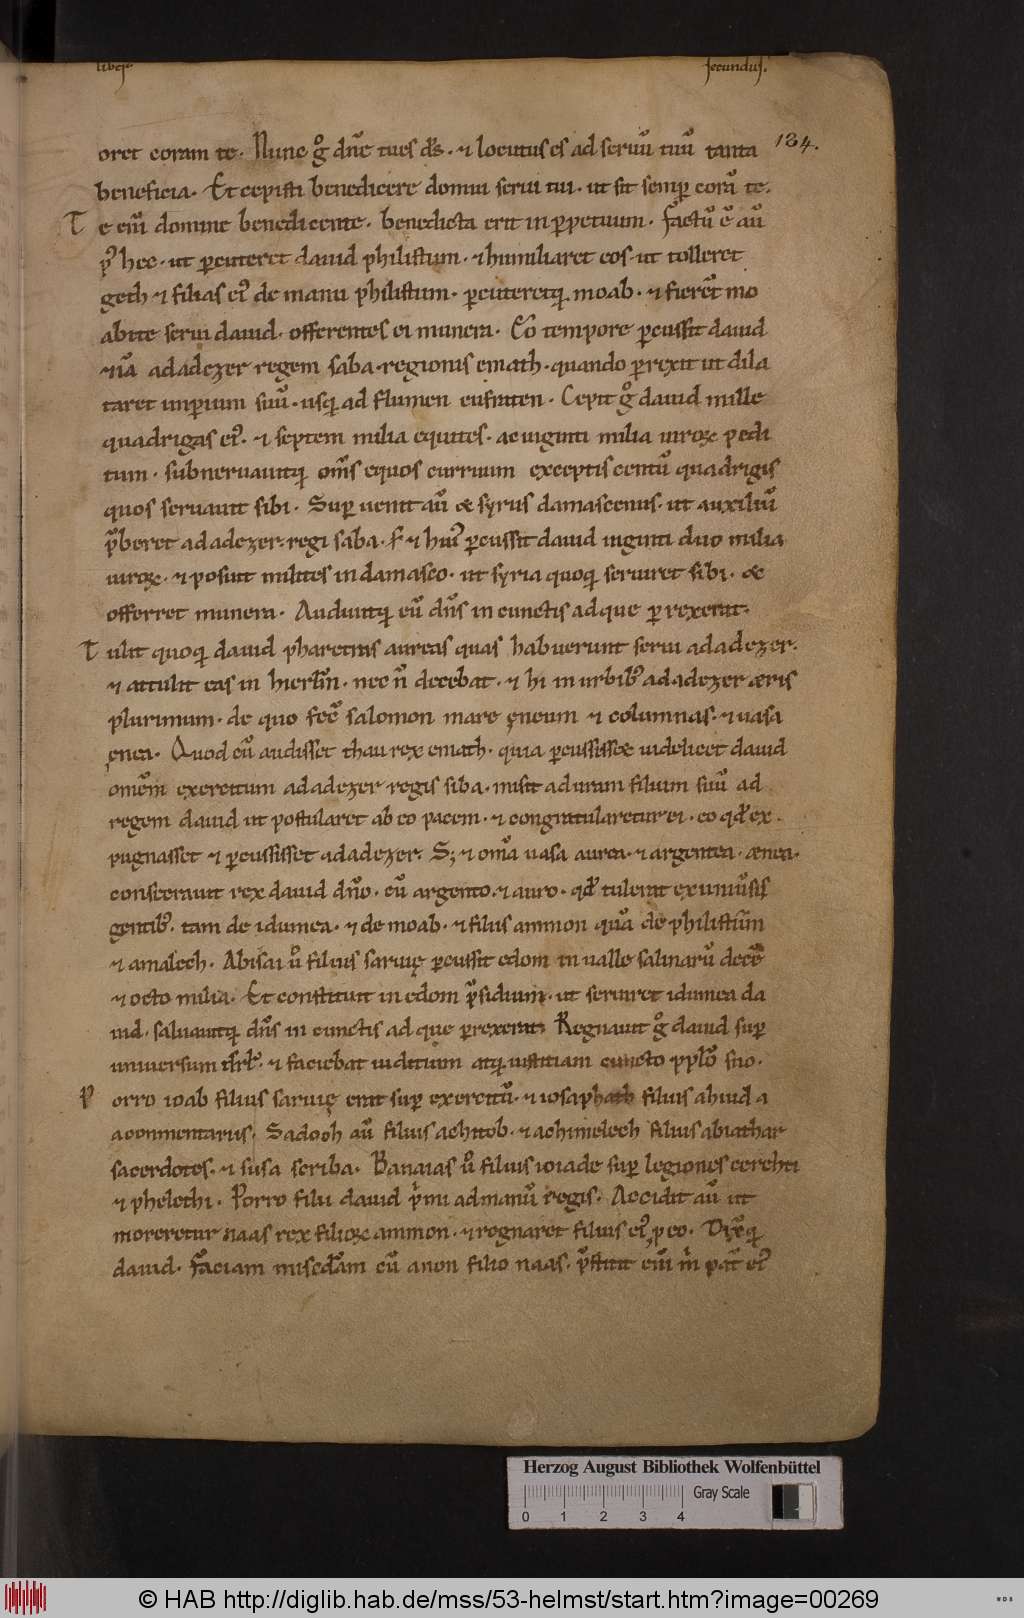 liber secundus.
134.
oret coram te. Nunc gͦ dn̄e tu es ds̄. ⁊ locutus es ad seruū tuū tanta
beneficia. Et cepisti benedicere domui serui tui. ut sit semꝑ corā te.
T e eni̅ domine benedicente. benedicta erit in ꝑpetuum. Factū ē aū
p᷒ hec. ut ꝑcuteret dauid philistum. ⁊ humiliaret eos. ut tolleret
geth ⁊ filias ei᷒ de manu philistum. ꝑcuteretqꝫ moab. ⁊ fierēt mo
abite serui dauid. offerentes ei munera. Eo tempore ꝑcussit dauid
⁊iā adadezer regem saba. regionis emath. quando ꝑrexit ut dila
taret imꝑium suū. usqꝫ ad flumen eufraten. Cepit gͦ dauid mille
quadrigas ei᷒. ⁊ septem milia equites. ac uiginti milia uiroꝝ pedi
tum. subneruauitqꝫ om̄s equos curruum exceptis centū quadrigis
quos seruauit sibi. Suꝑ uenit aū & syrus damascenus. ut auxiliū
p̄beret adadezer. regi saba. S ⁊ hui᷒ ꝑcussit dauid uiginti duo milia
uiroꝝ. ⁊ posuit milites in damasco. ut syria quoqꝫ seruiret sibi. &
offerret munera. Adiuuitqꝫ eū dn̄s in cunctis ad que ꝑrexerat.
T ulit quoqꝫ dauid pharetras aureas quas habuerunt serui adadezer.
⁊ attulit eas in hierlm̄. nec n̄ decebat. ⁊ hi in urbib᷒ adadezer æris
plurimum. de quo fec̄ salomon mare ęneum ⁊ columnas. ⁊ uasa
ęnea. Quod cū audisset thau rex emath. quia ꝑcussisset uidelicet dauid
omēm exercitum adadezer regis siba. misit aduram filium suū ad
regem dauid ut postularet ab eo pacem. ⁊ congratularetur ei. eo qđ ex
pugnasset ⁊ ꝑcussisset adadezer. Sꝫ ⁊ om̄a uasa aurea. ⁊ argentea. ænea.
consecrauit rex dauid dn̄o. cū argento. ⁊ auro. qđ tulerat ex uniūsis
gentib᷒. tam de idumea. ⁊ de moab. ⁊ filiis ammon quā de philistiīm
⁊ amalech. Abisai ůo filius saruię ꝑcussit edom in ualle salinarū decē
⁊ octo milia. Et constituit in edom p̄sidium. ut seruiret idumea da
uid. saluauitqꝫ dn̄s in cunctis ad que ꝑrexerat. Regnauit gͦ dauid suꝑ
uniuersum isrl᷒. ⁊ faciebat iuditium atqꝫ iustitiam cuncto pplō suo.
P orro ioab filius saruię erat suꝑ exercitū. ⁊ iosaphath filius ahiud a
acommentariis. Sadoch aū filius achitob. ⁊ achimelech filius abiathar
sacerdotes. ⁊ susa scriba. Banaias ůo filius ioiade suꝑ legiones cerethi
⁊ phelethi. Porro filii dauid p̄mi ad manū regis. Accidit aū ut
moreretur naas rex filioꝝ ammon. ⁊ regnaret filius ei᷒ ꝓ eo. Dix̄qꝫ
dauid. Faciam misēdiam cū anon filio naas. p̄stitit eni̅ m̄ pat̄ ei᷒
Herzog August Bibliothek Wolfenbüttel
0 1 2 3 4
Gray Scale
© HAB http://diglib.hab.de/mss/53-helmst/start.htm?image=00269